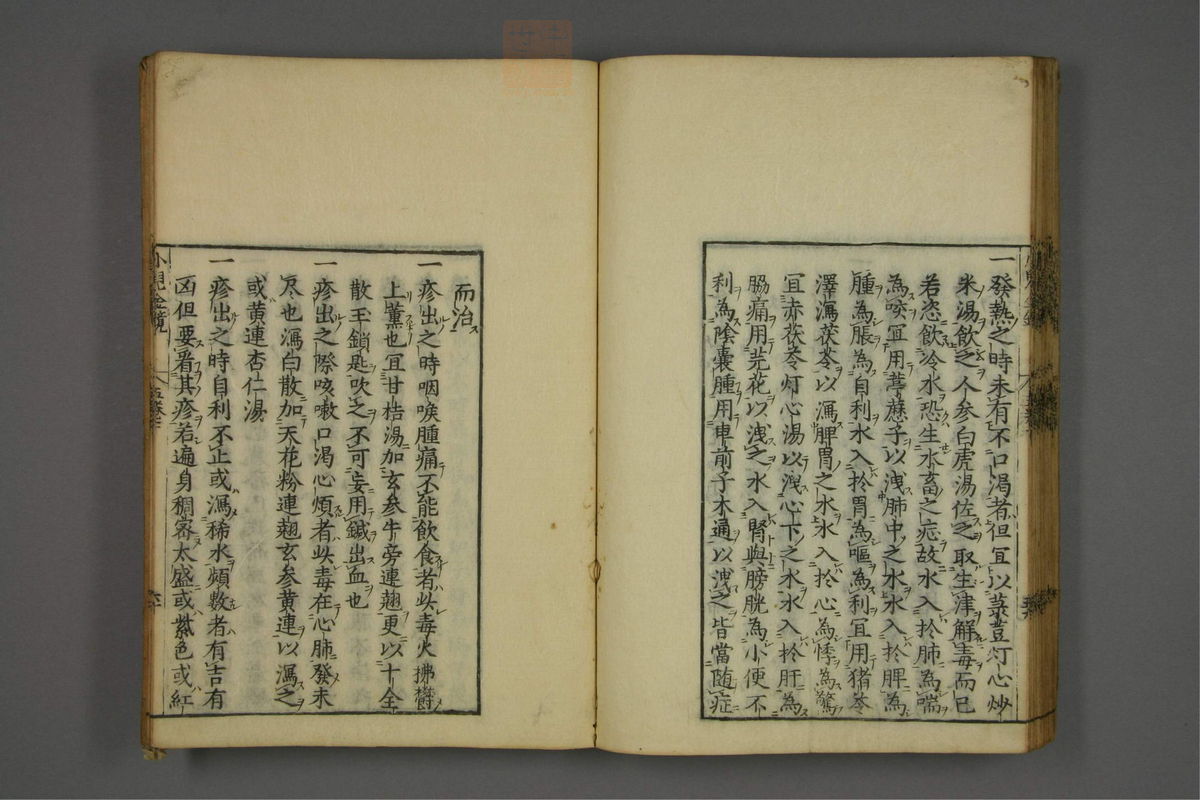 一發熱之時未有不口渴者但冝以菉荳灯心炒
米湯飲之人参白虎湯佐之取生津解毒而已
若恣飲冷水恐生水畜之症故水入扵肺為喘
為咳冝用葶藶子以洩肺中之水水入扵脾為
腫為脹為自利水入扵胃為嘔為利冝用猪苓
澤瀉茯苓以瀉脾胃之水水入扵心為悸為驚
冝赤茯苓灯心湯以洩心下之水水入扵肝為
脇痛用芫花以洩之水入腎與膀胱為小便不
利為陰囊腫用車前子木通以洩之皆當随症
而治
一疹出之時咽喉腫痛不能飲食者此毒火拂欝
上薫也冝甘桔湯加玄参牛旁連翹更以十全
散玉鎖匙吹之不可妄用鍼出血也
一疹出之際咳嗽口渴心煩者此毒在心肺發未
尽也瀉白散加天花粉連翹玄参黄連以瀉之
或黄連杏仁湯
一疹出之時自利不止或瀉稀水頻数者有吉有
凶但要看其疹若遍身稠密太盛或紫色或紅
小兒金鏡